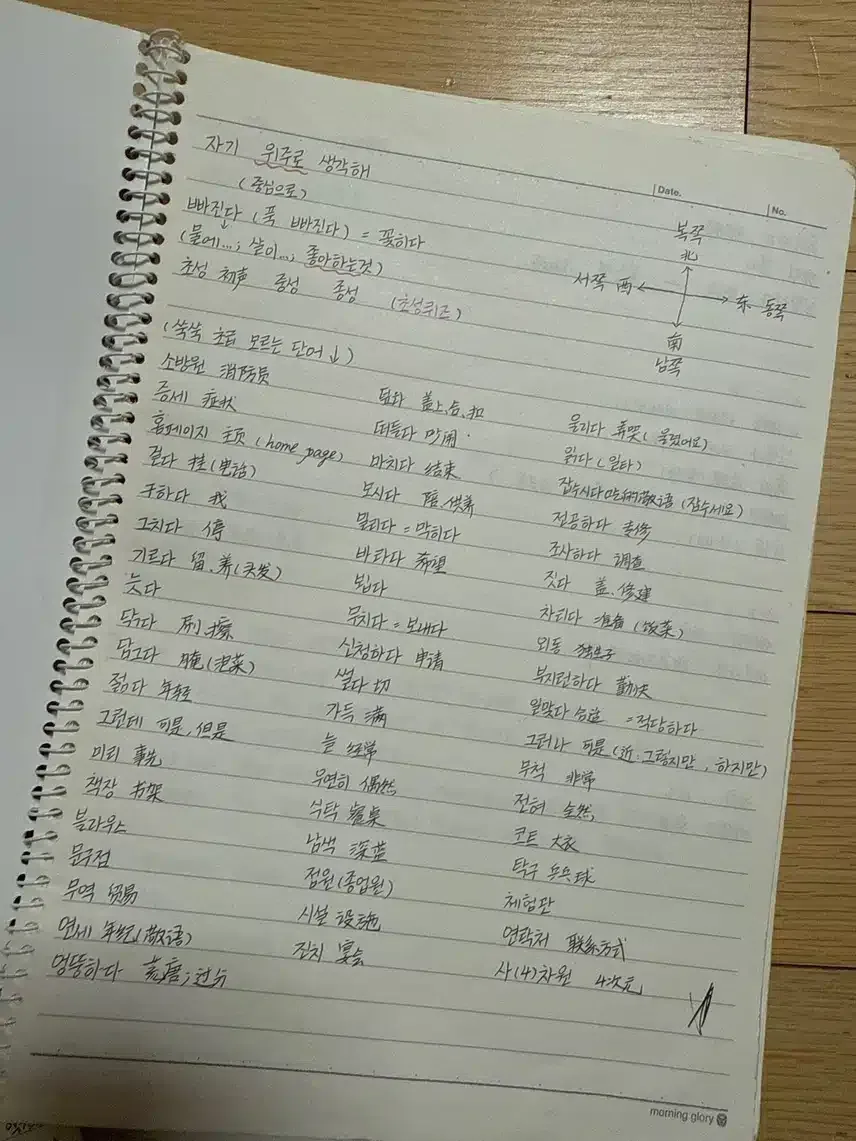 자기 위주로 생각해
(중심으로)
Date.
No.
빠진다 (푹 빠진다) = 꽂히다
(물에...; 살이...; 좋아하는것)
초성 初声 중성 종성 (초성퀴즈)
북쪽
北
서쪽 西
东 동쪽
南
남쪽
(쏙쏙 초급 모르는 단어↓)
소방원 消防员
증세 症状
홈페이지 主页 (home page)
걸다 挂(电话)
구하다 找
그치다 停
기르다 留,养(头发)
늣다
닦다 刷,擦
담그다 腌(泡菜)
젊다 年轻
그런데 可是,但是
미리 事先
책장 书架
블라우스
문구점
무역 贸易
연세 年纪(敬语)
엉뚱하다 荒唐;过分
덮다 盖上,合,扣
떠들다 吵闹
마치다 结束
모시다 陪,供养
밀리다 = 막히다
바라다 希望
뵙다
부치다 = 보내다
신청하다 申请
썰다 切
가득 满
늘 经常
우연히 偶然
식탁 餐桌
남색 深蓝
점원(종업원)
시설 设施
잔치 宴会
울리다 弄哭(울렸어요)
읽다 (일타)
잡수시다 吃的敬语 (잡수세요)
전공하다 专修
조사하다 调查
짓다 盖,修建
차리다 准备(饭菜)
외동 独生子
부지런하다 勤快
알맞다 合适 =적당하다
그러나 可是(近:그렇지만, 하지만)
무척 非常
전혀 全然
코트 大衣
탁구 乒乓球
체험판
연락처 联系方式
사(4)차원 4次元
morning glory